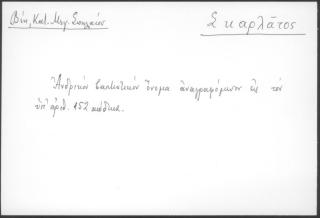 Βέη, Κατ. Μεγ. Σπηλαίου
Σκαρλᾶτος
Ἀνδρικόν βαπτιστικόν ὄνομα ἀναγραφόμενον εἰς τόν
ὑπ' ἀριθ. 152 κώδικα.